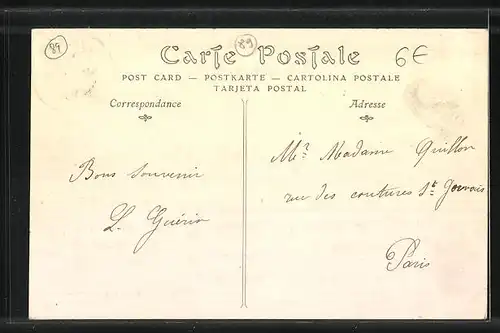 89
89
Carte Postale
6€
POST CARD — POSTKARTE — CARTOLINA POSTALE
TARJETA POSTAL
Correspondance
Adresse
Bons Souvenir
L. Guérin
Mr Madame Guillon
rue des coutures St Gervais
Paris